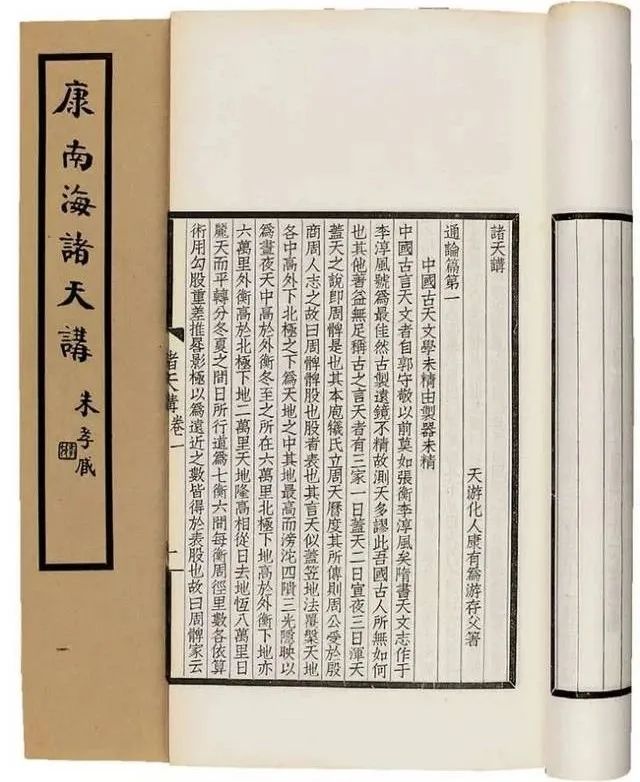 康南海諸天講
朱孝臧
諸天講
天游化人康有爲游存父著
通論篇第一
中國古天文學未精由製器未精
中國古言天文者自郭守敬以前莫如張衡李淳風矣隋書天文志作于
李淳風號爲最佳然古製遠鏡不精故測天多謬此吾國古人所無如何
也其他著益無足稱古之言天者有三家一曰蓋天二曰宣夜三曰渾天
蓋天之說即周髀是也其本庖犧氏立周天曆度其所傳則周公受於殷
商周人志之故曰周髀髀股也股者表也其言天似蓋笠地法覆槃天地
各中高外下北極之下爲天地之中其地最高而滂沲四隤三光隱映以
爲晝夜天中高於外衡冬至之所在六萬里北極下地高於外衡下地亦
六萬里外衡高於北極下地二萬里天地隆高相從日去地恆八萬里日
麗天而平轉分冬夏之間日所行道爲七衡六間每衡周徑里數各依算
術用勾股重差推晷影極以爲遠近之數皆得於表股也故曰周髀家云
諸天講 卷一